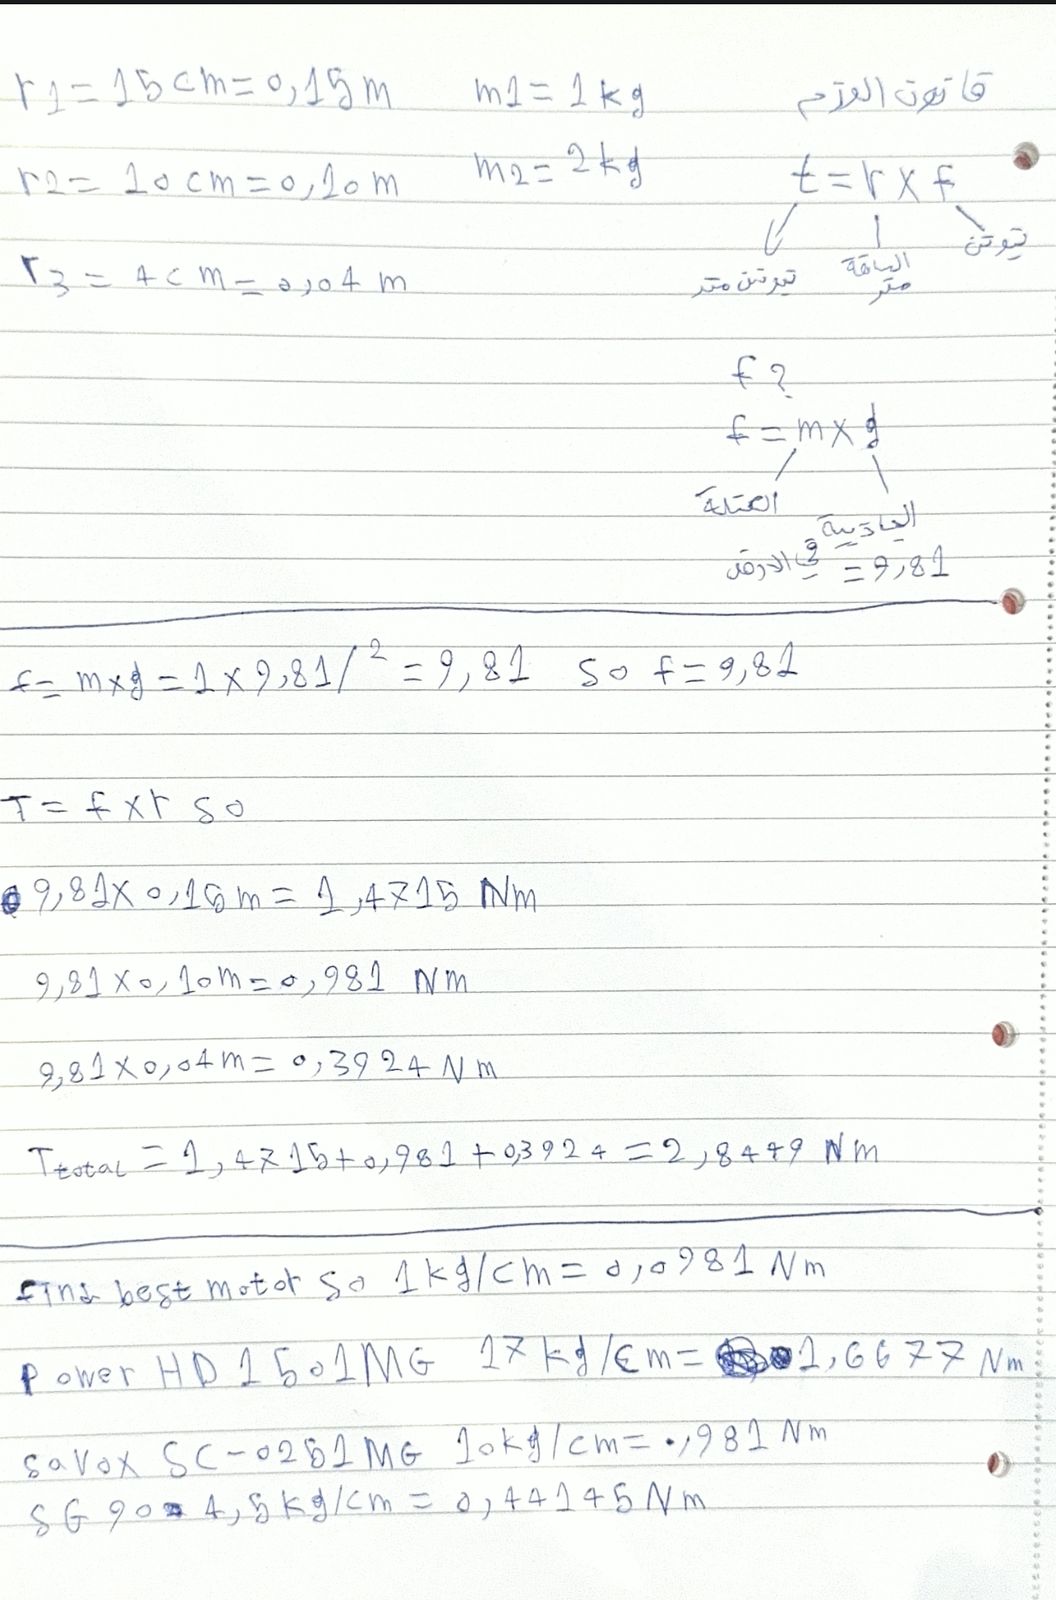 r1 = 15 cm = 0,15 m    m1 = 1 kg    قانون العزم
r2 = 10 cm = 0,10 m    m2 = 2 kg    t = r x f
r3 = 4 cm = 0,04 m    نيوتن متر    الساقة متر    نيوتن
f ?
f = m x g
الكتلة    الجاذبية
في الارض = 9,81
f = m x g = 1 x 9,81 / ² = 9,81    so f = 9,81
T = f x r so
9,81 x 0,15 m = 1,4715 Nm
9,81 x 0,10 m = 0,981 Nm
9,81 x 0,04 m = 0,3924 Nm
T total = 1,4715 + 0,981 + 0,3924 = 2,8449 Nm
find best motor so 1 kg/cm = 0,0981 Nm
Power HD 1501MG 17 kg/cm = 1,6677 Nm
savox SC-0251MG 10 kg/cm = 0,981 Nm
SG 90 4,5 kg/cm = 0,44145 Nm